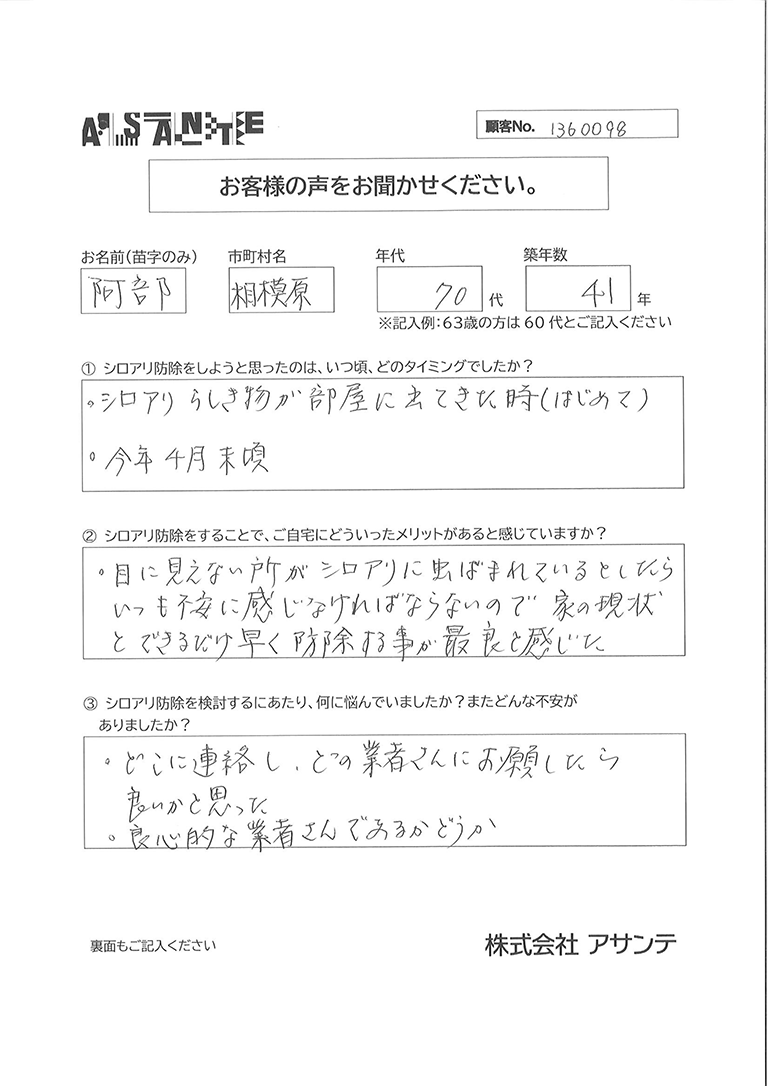 ASANTE
顧客No. 1360098
お客様の声をお聞かせください。
お名前(苗字のみ) 市町村名 年代 築年数
阿部 相模原 70 代 41 年
※記入例:63歳の方は60代とご記入ください
① シロアリ防除をしようと思ったのは、いつ頃、どのタイミングでしたか?
。シロアリらしき物が部屋に出てきた時(はじめて)
。今年4月末頃
② シロアリ防除をすることで、ご自宅にどういったメリットがあると感じていますか?
。目に見えない所がシロアリに虫ばまれているとしたら
いつも不安に感じなければならないので家の現状
とできるだけ早く防除する事が最良と感じた
③ シロアリ防除を検討するにあたり、何に悩んでいましたか?またどんな不安が
ありましたか?
。どこに連絡し、どの業者さんにお願したら
良いかと思った
。良心的な業者さんであるかどうか
裏面もご記入ください
株式会社 アサンテ